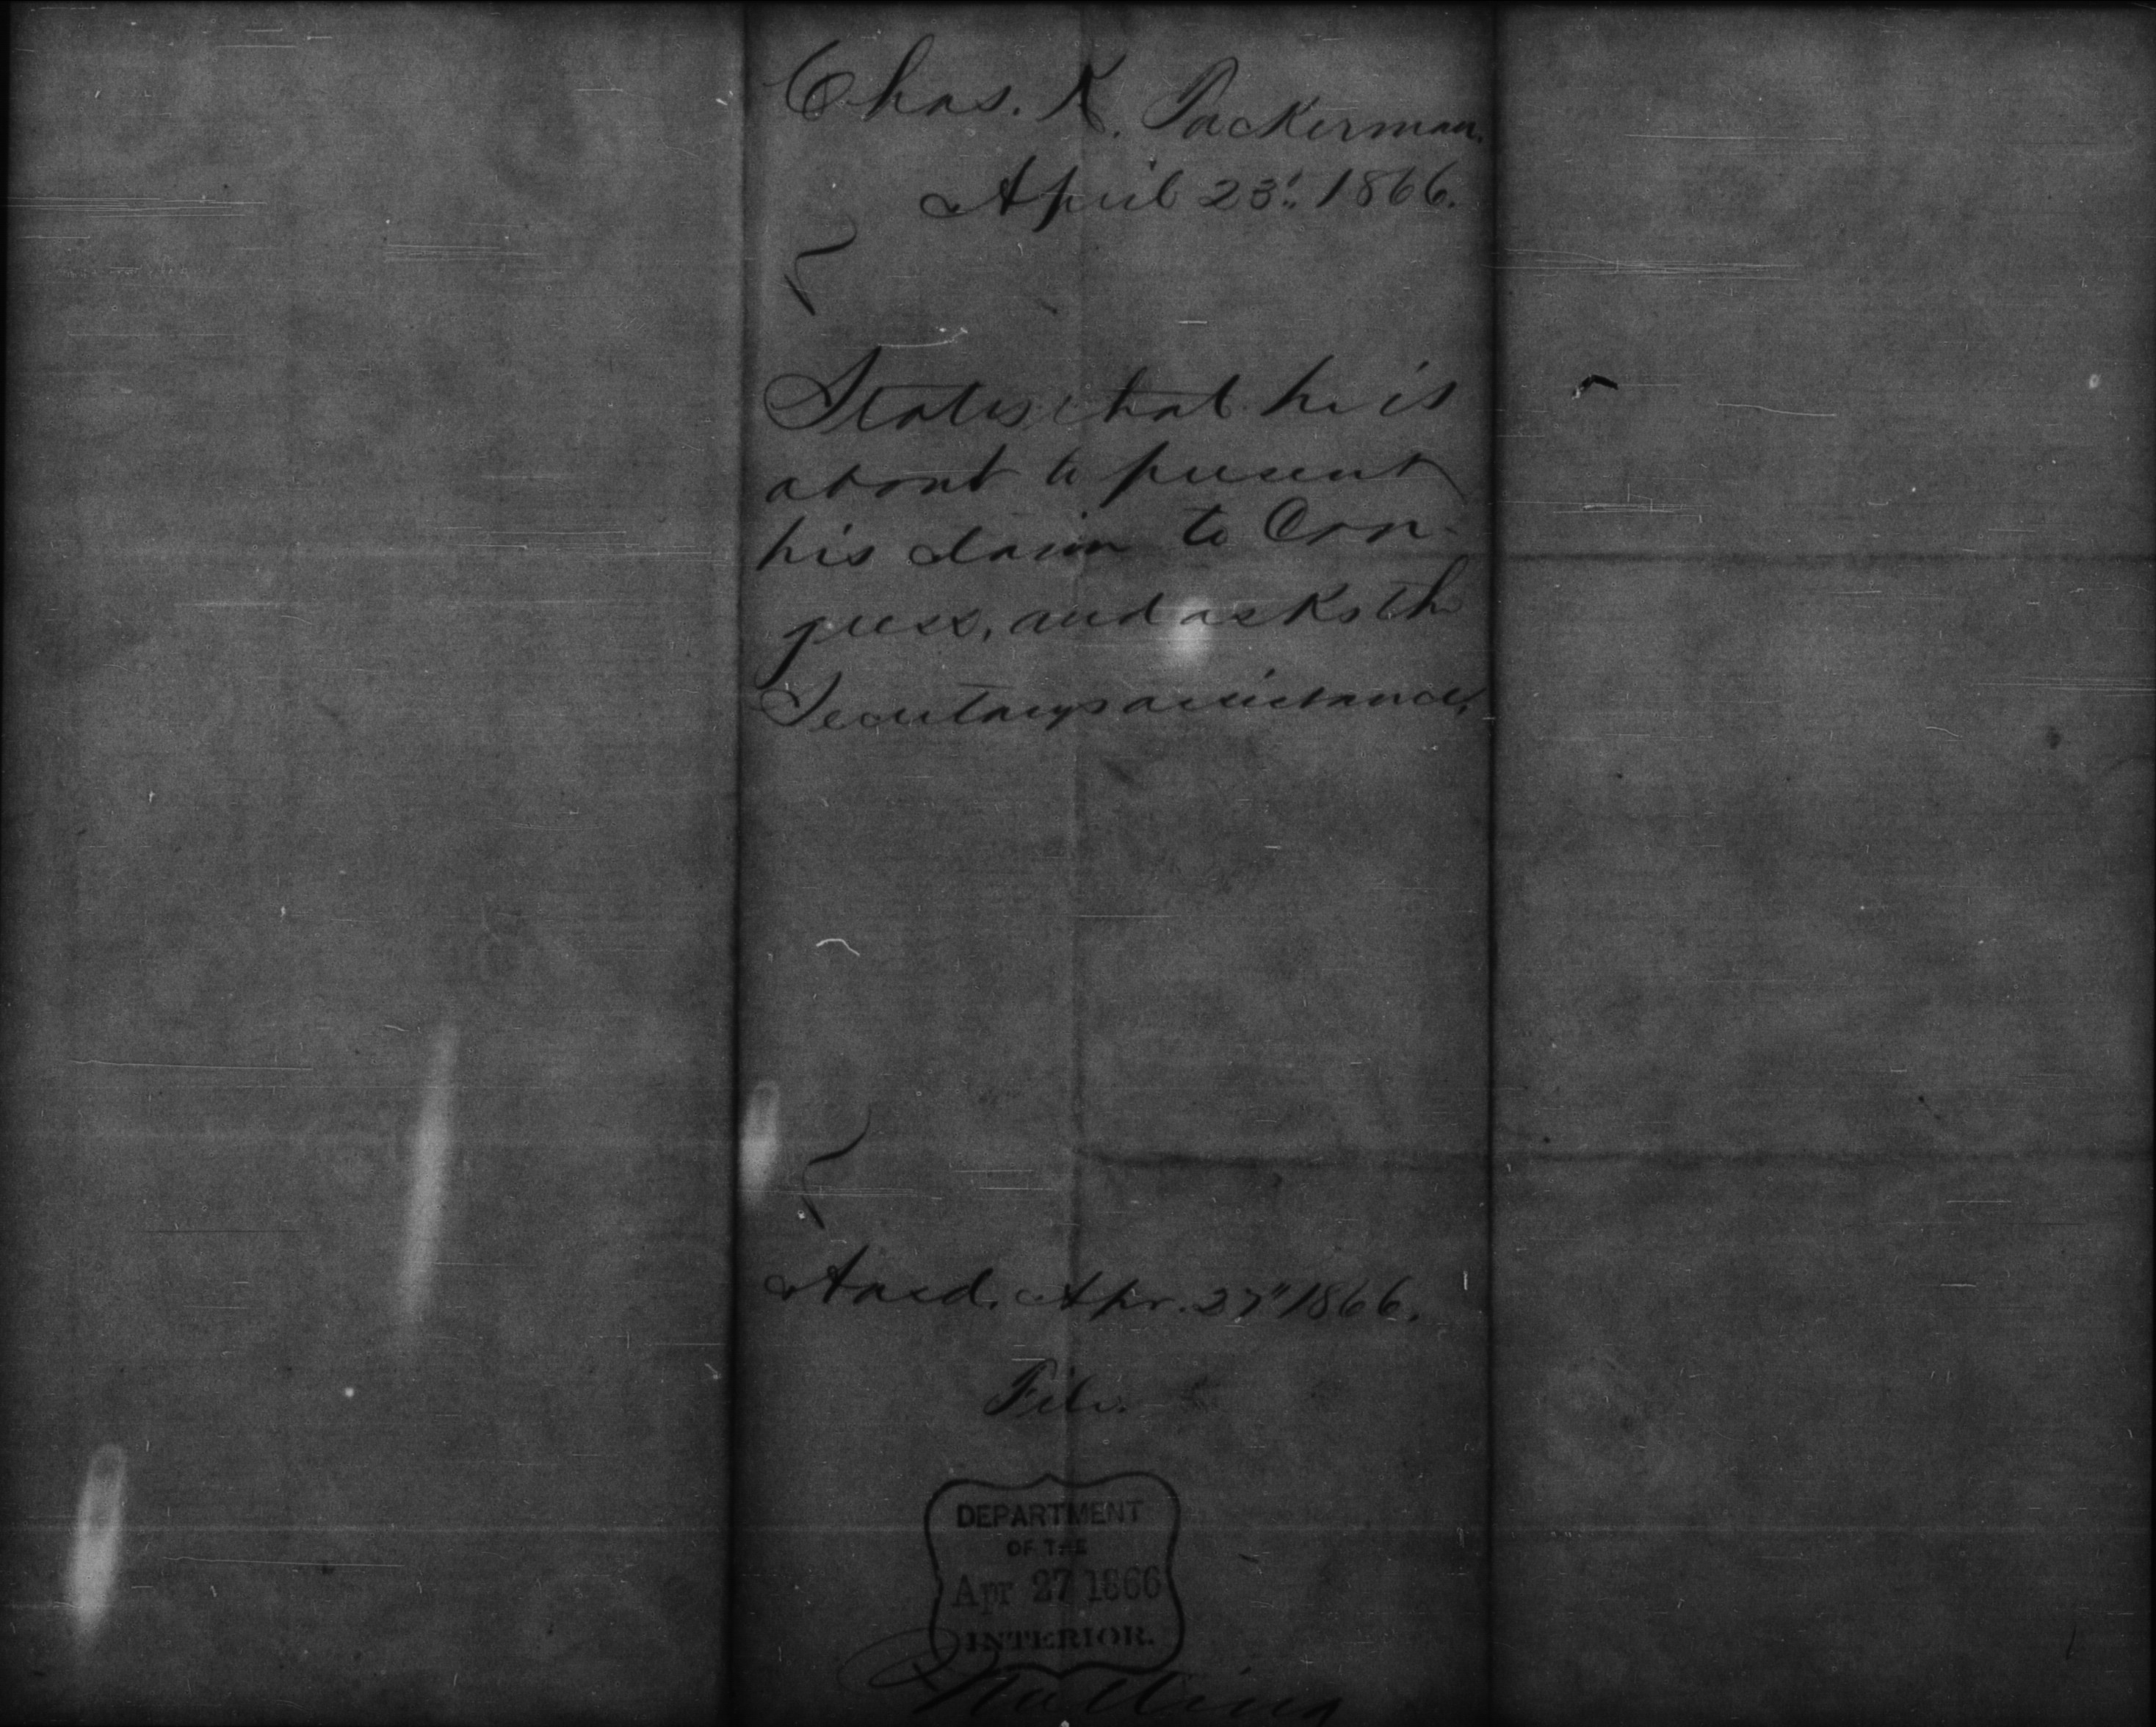 Chas. K. Tackerman.
April 23d. 1866.
States that he is
about to present
his claim to Con-
gress, and asks the
Secretarys assistance.
Ansd. Apr. 27" 1866.
File.
DEPARTMENT
OF THE
Apr 27 1866
INTERIOR.